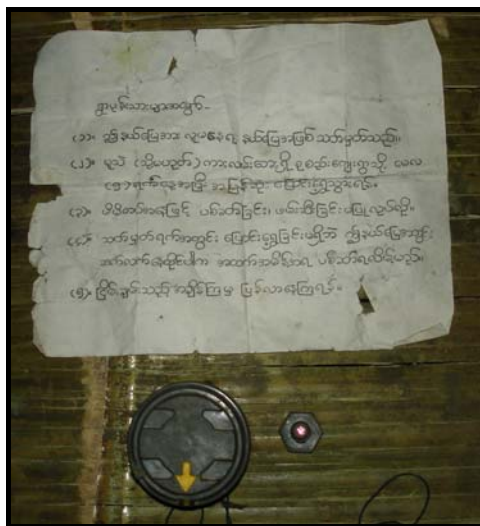 ရွာပုန်းသားများအတွက်-
(၁)။ ဤနယ်မြေအား လူမနေရ နယ်မြေအဖြစ် သတ်မှတ်သည်။
(၂)။ မူသဲ (သို့မဟုတ်) ကားလမ်းဘေးရှိ စုစည်းကျေးရွာသို့ မေလ
(၅) ရက်နေ့အပြီး အမြန်ဆုံး ပြောင်းရွှေ့သွားရန်။
(၃)။ မိမိတပ်အနေဖြင့် ပစ်ခတ်ခြင်း၊ ဖမ်းဆီးခြင်း မပြုလုပ်လို။
(၄)။ သတ်မှတ်ရက်အတွင်း ပြောင်းရွှေ့ခြင်းမရှိဘဲ ဤနယ်မြေအတွင်း
ဆက်လက်နေထိုင်ပါက အထက်အမိန့်အရ ပစ်ခတ်ရလိမ့်မည်။
(၅)။ ငြိမ်းချမ်းသည့် အချိန်ကြမှ ပြန်လာနေကြရန်။